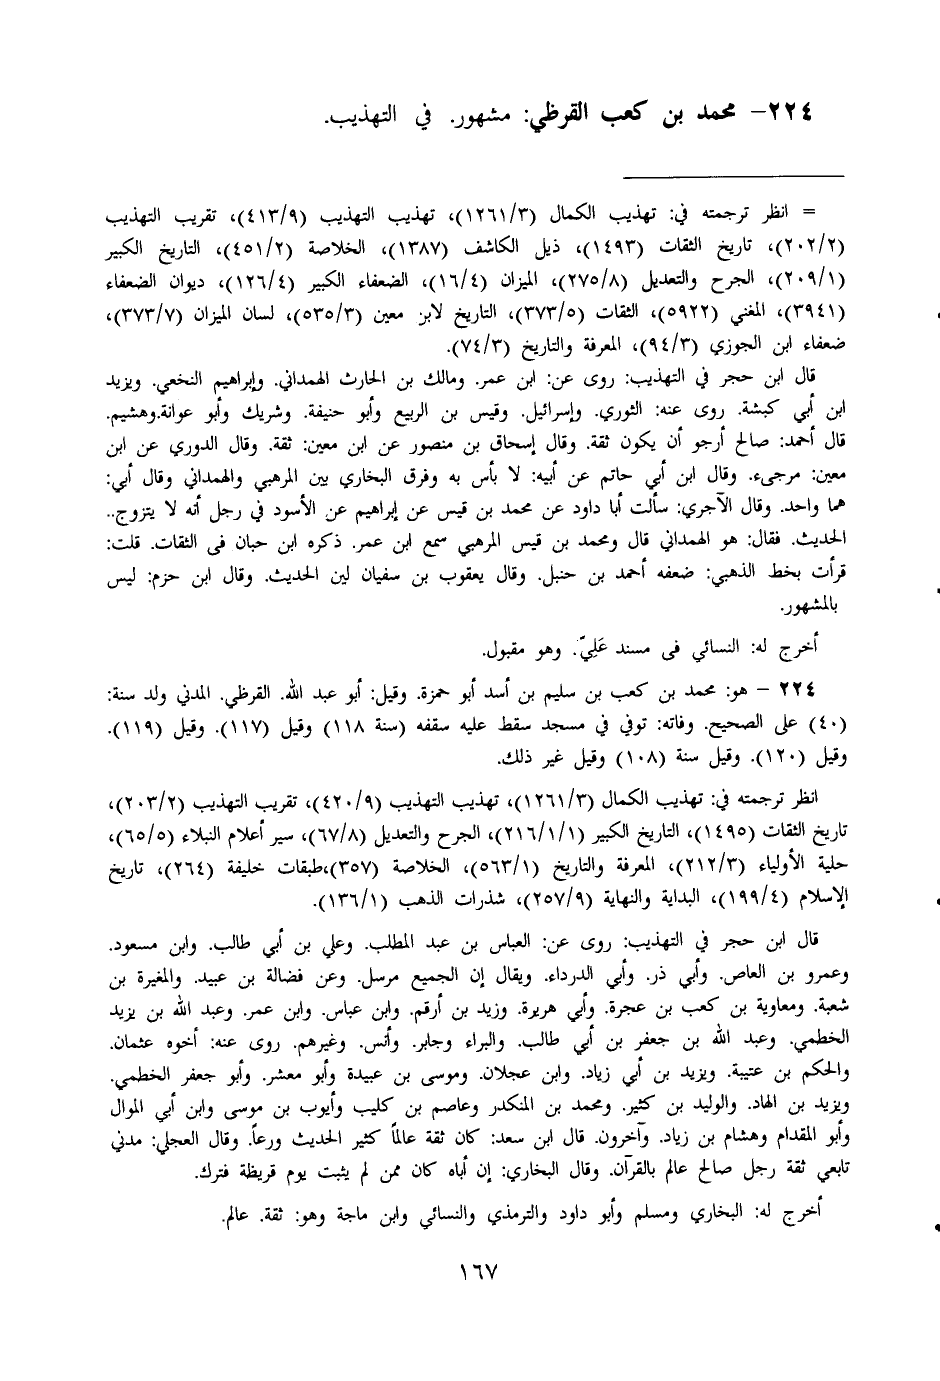 ٢٢٤- محمد بن كعب القرظي: مشهور. في التهذيب.
= انظر ترجمته في: تهذيب الكمال (١٢٦١/٣)، تهذيب التهذيب (٤١٣/٩)، تقريب التهذيب
(٢٠٢/٢)، تاريخ الثقات (١٤٩٣)، ذيل الكاشف (١٣٨٧)، الخلاصة (٤٥١/٢)، التاريخ الكبير
(٢٠٩/١)، الجرح والتعديل (٢٧٥/٨)، الميزان (١٦/٤)، الضعفاء الكبير (١٢٦/٤)، ديوان الضعفاء
(٣٩٤١)، المغني (٥٩٢٢)، الثقات (٣٧٣/٥)، التاريخ لابن معين (٥٣٥/٣)، لسان الميزان (٣٧٣/٧)،
ضعفاء ابن الجوزي (٩٤/٣)، المعرفة والتاريخ (٧٤/٣).
قال ابن حجر في التهذيب: روى عن: ابن عمر. ومالك بن الحارث الهمداني. وإبراهيم النخعي. ويزيد
ابن أبي كبشة. روى عنه: الثوري. وإسرائيل. وقيس بن الربيع وأبو حنيفة. وشريك وأبو عوانة.وهشيم.
قال أحمد: صالح أرجو أن يكون ثقة. وقال إسحاق بن منصور عن ابن معين: ثقة. وقال الدوري عن ابن
معين: مرجىء. وقال ابن أبي حاتم عن أبيه: لا بأس به وفرق البخاري بين المرهبي والهمداني وقال أبي:
هما واحد. وقال الآجري: سألت أبا داود عن محمد بن قيس عن إبراهيم عن الأسود في رجل أنه لا يتزوج..
الحديث. فقال: هو الهمداني قال ومحمد بن قيس المرهبي سمع ابن عمر. ذكره ابن حبان فى الثقات. قلت:
قرأت بخط الذهبي: ضعفه أحمد بن حنبل. وقال يعقوب بن سفيان لين الحديث. وقال ابن حزم: ليس
بالمشهور.
أخرج له: النسائي فى مسند عَلِيّ. وهو مقبول.
٢٢٤ - هو: محمد بن كعب بن سليم بن أسد أبو حمزة. وقيل: أبو عبد الله. القرظي. المدني ولد سنة:
(٤٠) على الصحيح. وفاته: توفي في مسجد سقط عليه سقفه (سنة ١١٨) وقيل (١١٧). وقيل (١١٩).
وقيل (١٢٠). وقيل سنة (١٠٨) وقيل غير ذلك.
انظر ترجمته في: تهذيب الكمال (١٢٦١/٣)، تهذيب التهذيب (٤٢٠/٩)، تقريب التهذيب (٢٠٣/٢)،
تاريخ الثقات (١٤٩٥)، التاريخ الكبير (٢١٦/١/١)، الجرح والتعديل (٦٧/٨)، سير أعلام النبلاء (٦٥/٥)،
حلية الأولياء (٢١٢/٣)، المعرفة والتاريخ (٥٦٣/١)، الخلاصة (٣٥٧)،طبقات خليفة (٢٦٤)، تاريخ
الإسلام (١٩٩/٤)، البداية والنهاية (٢٥٧/٩)، شذرات الذهب (١٣٦/١).
قال ابن حجر في التهذيب: روى عن: العباس بن عبد المطلب. وعلي بن أبي طالب. وابن مسعود.
وعمرو بن العاص. وأبي ذر. وأبي الدرداء. ويقال إن الجميع مرسل. وعن فضالة بن عبيد. والمغيرة بن
شعبة. ومعاوية بن كعب بن عجرة. وأبي هريرة. وزيد بن أرقم. وابن عباس. وابن عمر. وعبد الله بن يزيد
الخطمي. وعبد الله بن جعفر بن أبي طالب. والبراء وجابر. وأنس. وغيرهم. روى عنه: أخوه عثمان.
والحكم بن عتيبة. ويزيد بن أبي زياد. وابن عجلان. وموسى بن عبيدة وأبو معشر. وأبو جعفر الخطمي.
ويزيد بن الهاد. والوليد بن كثير. ومحمد بن المنكدر وعاصم بن كليب وأيوب بن موسى وابن أبي الموال
وأبو المقدام وهشام بن زياد. وآخرون. قال ابن سعد: كان ثقة عالماً كثير الحديث ورعاً. وقال العجلي: مدني
تابعي ثقة رجل صالح عالم بالقرآن. وقال البخاري: إن أباه كان ممن لم يثبت يوم قريظة فترك.
أخرج له: البخاري ومسلم وأبو داود والترمذي والنسائي وابن ماجة وهو: ثقة. عالم.
١٦٧